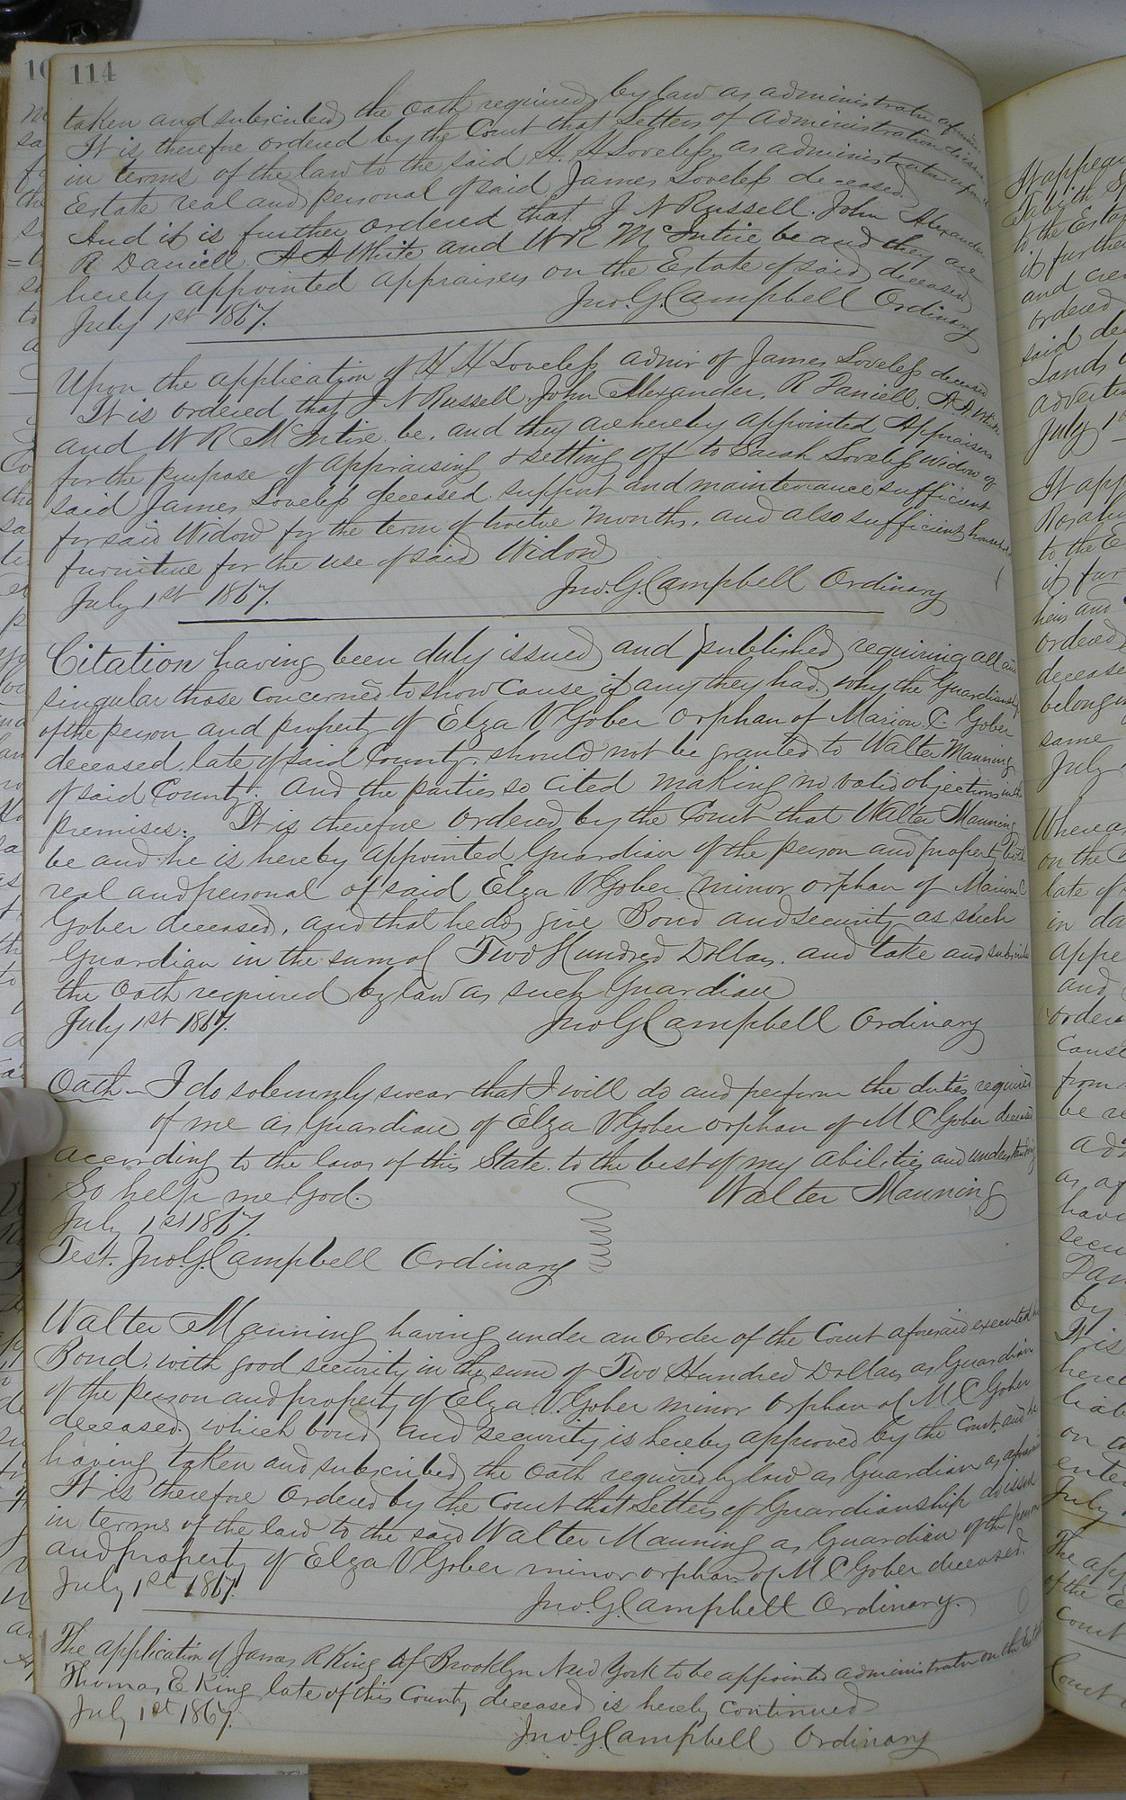 114
taken and subscribed the oath required by law as administrator
It is therefore ordered by the Court that Letters of Administration
in terms of the law to the said H. H Loveless as administrator upon
Estate real and personal of said James Loveless deceased.
And it is further ordered that J N Russell. John Alexander
R Daniell. A A White and W R McEntire be and they are
hereby appointed appraisers on the Estate of said deceased
July 1st 1867. Jno. G. Campbell Ordinary
Upon the application of H H Loveless admr of James Loveless deceased
It is ordered that J N Russell. John Alexander, R Daniell. A A White
and W R McEntire be, and they are hereby appointed Appraisers
for the purpose of appraising & setting off to Sarah Loveless widow of
said James Loveless deceased. support and maintenance sufficient
for said Widow for the term of twelve months. and also sufficient household
furniture for the use of said Widow
July 1st 1867. Jno. G. Campbell Ordinary
Citation having been duly issued and published requiring all and
singular those concerned to show cause if any they had. why the Guardianship
of the person and property of Elza V Gober orphan of Marion C. Gober
deceased late of said County. should not be granted to Walter Manning
of said County. And the parties so cited making no valid objections
premises. It is therefore ordered by the Court that Walter Manning
be and he is hereby appointed Guardian of the person and property both
real and personal of said Elza V Gober minor orphan of Marion C
Gober deceased, and that he do give Bond and security as such
Guardian in the sum of Two Hundred Dollars. and take and subscribe
the oath required by law as such Guardian
July 1st 1867. Jno G Campbell Ordinary
Oath - I do solemnly swear that I will do and perform the duties required
of me as Guardian of Elza V Gober orphan of M C Gober deceased
according to the laws of this State. to the best of my abilities and understanding
So help me God. Walter Manning
July 1st 1867.
Test. Jno. G. Campbell Ordinary
Walter Manning having under an Order of the Court aforesaid executed
Bond. with good security in the sum of Two Hundred Dollars as Guardian
of the person and property of Elza V. Gober minor orphan of M C Gober
deceased. which bond and security is hereby approved by the Court and he
having taken and subscribed the oath required by law as Guardian as aforesaid
It is therefore Ordered by the Court that Letters of Guardianship do issue
in terms of the law to the said Walter Manning as Guardian of the person
and property of Elza V Gober minor orphan of M C Gober deceased.
July 1st 1867. Jno. G. Campbell Ordinary.
The application of James R King of Brooklyn New York to be appointed administrator on the
Thomas E King late of this County deceased is hereby continued
July 1st 1867. Jno. G. Campbell Ordinary